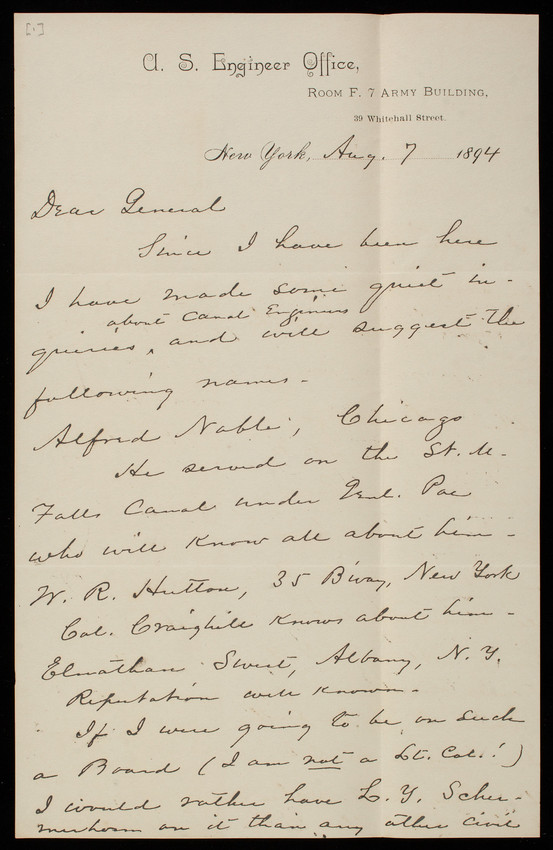 [1]
U. S. Engineer Office,
Room F. 7 Army Building,
39 Whitehall Street.
New York, Aug. 7 1894
Dear General
Since I have been here
I have made some quiet in-
about Canal Engineers
quiries, and will suggest the
following names -
Alfred Noble, Chicago
He served on the St. M-
Falls Canal under Genl. Poe
who will know all about him -
W. R. Hutton, 35 B'way, New York
Col. Craighill knows about him -
Elnathan Sweet, Albany, N. Y.
Reputation well known -
If I were going to be on such
a Board (I am not a Lt. Col.!)
I would rather have L. Y. Scher-
merhorn on it than any other civil